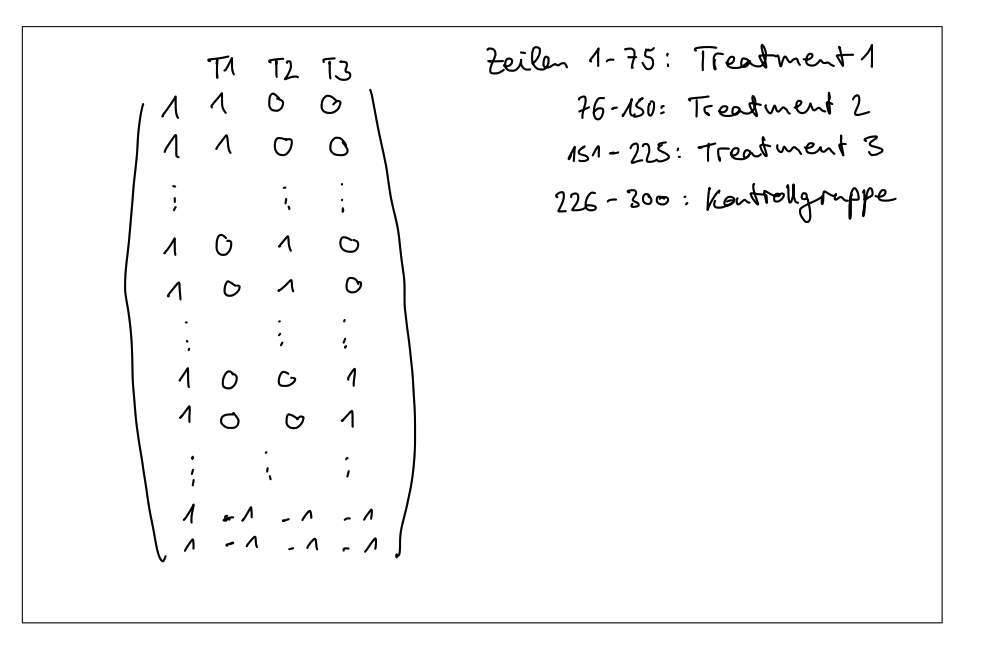 T1 T2 T3
1 1 0 0
1 1 0 0
⋮ ⋮ ⋮
1 0 1 0
1 0 1 0
⋮ ⋮ ⋮
1 0 0 1
1 0 0 1
⋮ ⋮ ⋮
1 -1 -1 -1
1 -1 -1 -1
Zeilen 1-75: Treatment 1
76-150: Treatment 2
151-225: Treatment 3
226-300: Kontrollgruppe